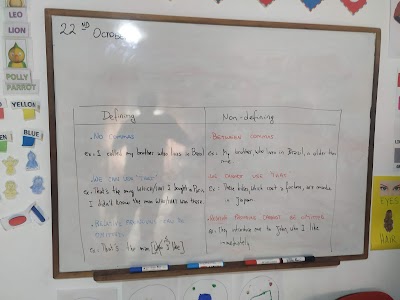 22ND OCTOBER
LEO
LION
POLLY
PARROT
YELLOW
BLUE
Defining
Non-defining
• NO COMMAS
ex: I called my brother who lives in Brazil
• WE CAN USE "THAT"
ex: That's the map which/that I bought in Paris
I didn't know the man who/that was there
• RELATIVE PRONOUNS CAN BE
OMITTED
ex: That's the man I
BETWEEN COMMAS
ex: My brother, who lives in Brazil, is older than
me.
WE CANNOT USE THAT
ex: These bikes, which cost a fortune, are made
in Japan.
RELATIVE PRONOUNS CANNOT BE OMITTED
ex: They introduce me to John, who I like
immediately
EYES
HAIR